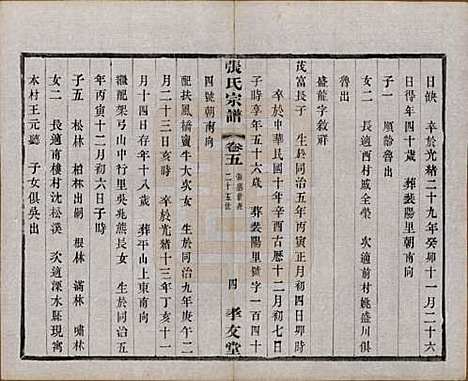 日缺 卒於光緒二十九年癸卯十一月二十六
日得年四十歲 葬裴陽里朝南向
子一 順龄出嗣
女二 長適西村戚全榮 次適前村姚盛川俱
魯出
盛龍字敘祥
茂富長子 生於同治五年丙寅正月初四日寅時
卒於中華民國十年辛酉古歷十二月初七日
子時享年五十六歲 葬裴陽里號字一百四十
四號朝南向
張氏宗譜 卷五
二十五世
四 孝友堂
配扶風橋竇牛大次女 生於同治九年庚午二
月二十三日亥時 卒於光緒十三年丁亥十一
月十四日存年十八歲 葬平山上朝南向
繼配架弓山中行里吳兆熊長女 生於同治
年丙寅十二月初六日子時
子五 松林 柏林出嗣 根林 滿林 嘯林
女二 長適南樓村沈松溪 次適溧水縣現寓
本村王元聽 子女俱吳出